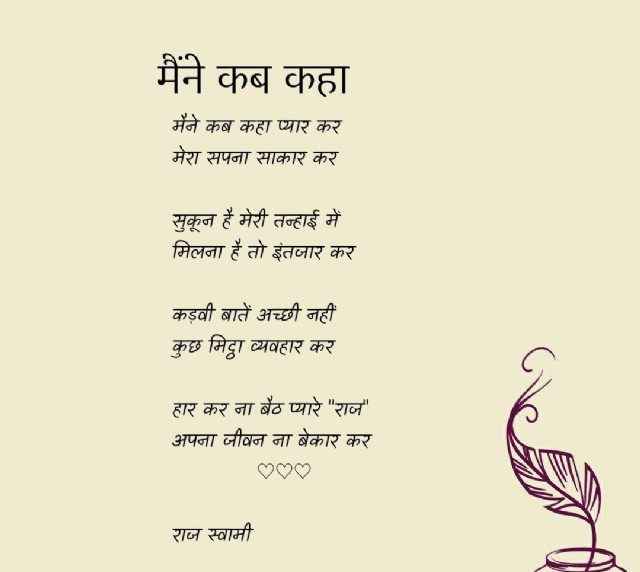 मैंने कब कहा
मैने कब कहा प्यार कर
मेरा सपना साकार कर
सुकून है मेरी तन्हाई में
मिलना है तो इंतजार कर
कड़वी बातें अच्छी नहीं
कुछ मिट्ठा व्यवहार कर
हार कर ना बैठ प्यारे "राज"
अपना जीवन ना बेकार कर
♡♡♡
राज स्वामी